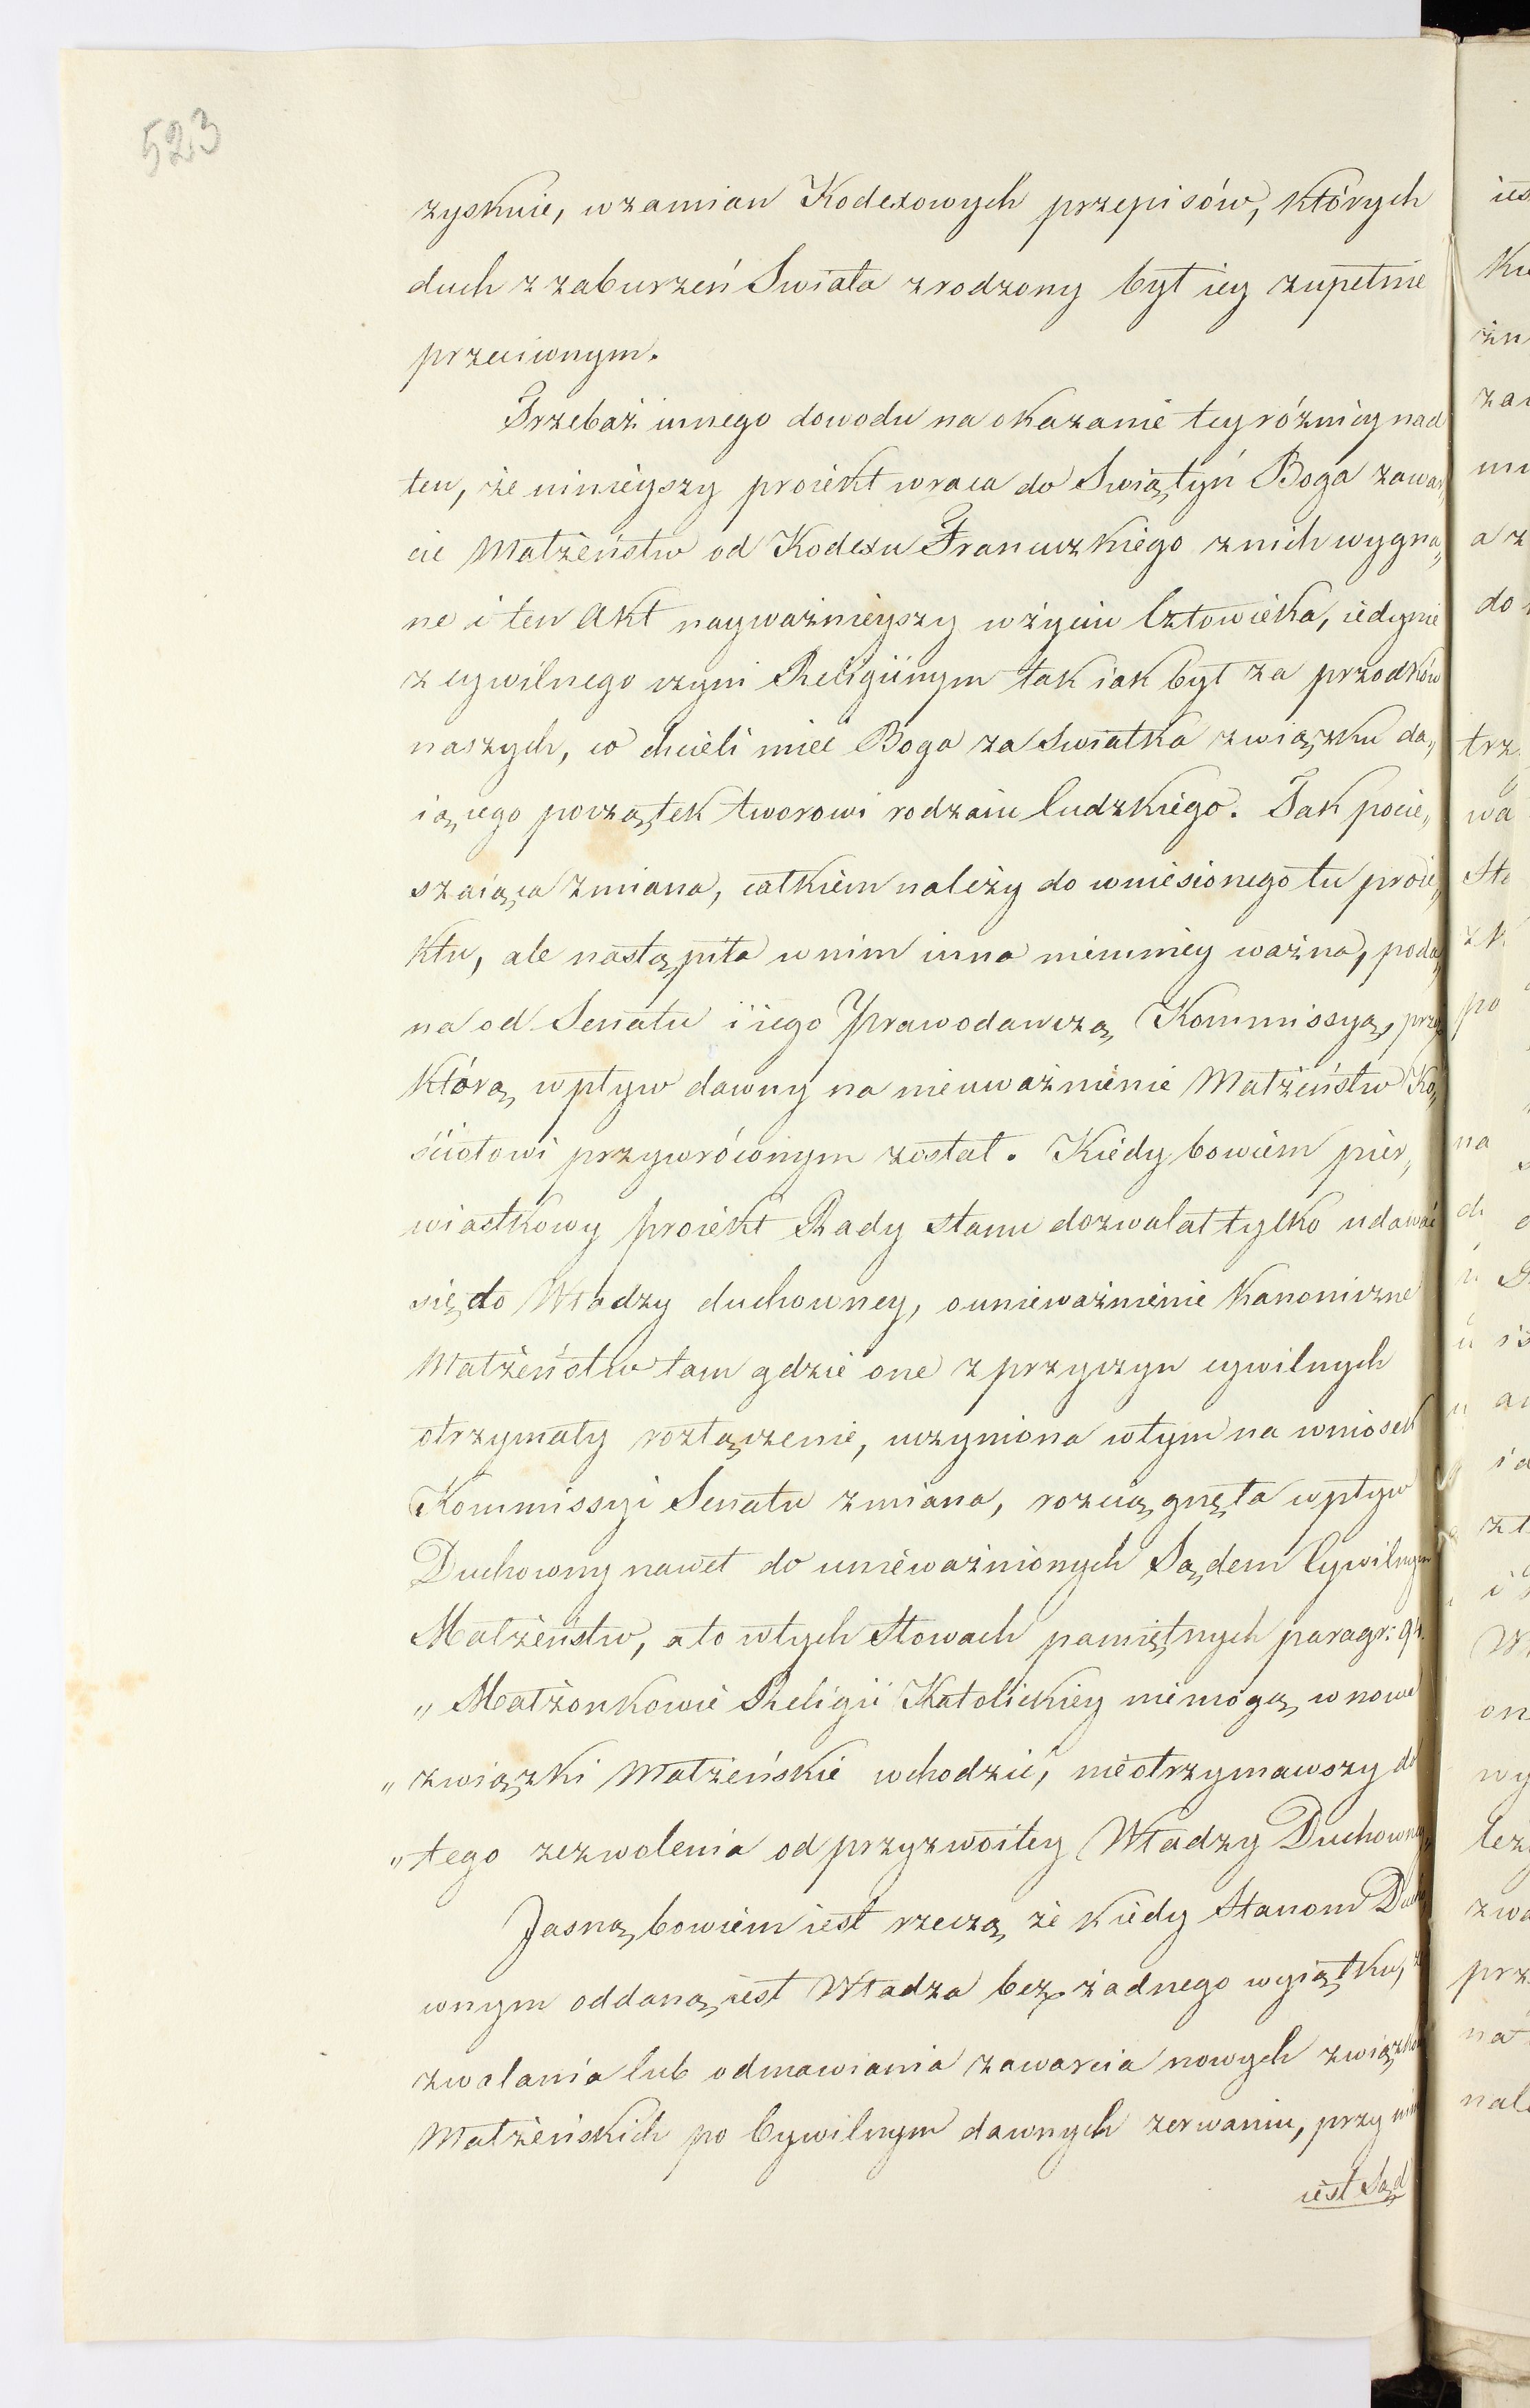 523
zyskuie, wzamian Kodexowych przepisów, których
duch z zaburzeń Swiata zrodzony był iey zupełnie
przeciwnym.
Trzebaż innego dowodu na okazanie tey różnicy nad
ten, że ninieyszy proiekt wraca do Swiątyń Boga zawar„
cie Małżeństw od Kodexu Francuzkiego znich wygna„
ne i ten Akt nayważnieyszy wżyciu Człowieka, iedynie
z cywilnego czyni Religiinym tak iak był za przodków
naszych, co chcieli mieć Boga za Swiatka związku da„
iącego początek tworowi rodzaiu ludzkiego. Tak pocie„
szaiąca zmiana, całkiem należy do wniesionego tu proie„
ktu, ale nastąpiła wnim inna niemniey ważna, poda„
na od Senatu i iego Prawodawczą Kommissyą, przez
którą wpływ dawny na nieuważnienie Małżeństw Ko„
ściołowi przywróconym został. Kiedy bowiem pier„
wiastkowy proiekt Rady Stanu dozwalał tylko udawać
się do Władzy duchowney, o unieważnienie Kanoniczne
Małżeństw tam gdzie one z przyczyn cywilnych
otrzymały rozłączenie, uczyniona wtym na wniosek
Kommissyi Senatu zmiana, rozciągnęła wpływ
Duchowny nawet do unieważnionych Sądem Cywilnym
Małżeństw, a to wtych Słowach pamiętnych paragr:
„Małżonkowie Religii Katolickiey niemogą w nowe
„związki Małżeńskie wchodzić, nieotrzymawszy do
„tego zezwolenia od przyzwoitey Władzy Duchowney
Jasną bowiem iest rzeczą że kiedy Stanom Ducho
wnym oddaną iest Władza bez żadnego wyiątku,
zwalania lub odmawiania zawarcia nowych związków
Małżeńskich po Cywilnym dawnych zerwaniu, przy nim
iest Sąd